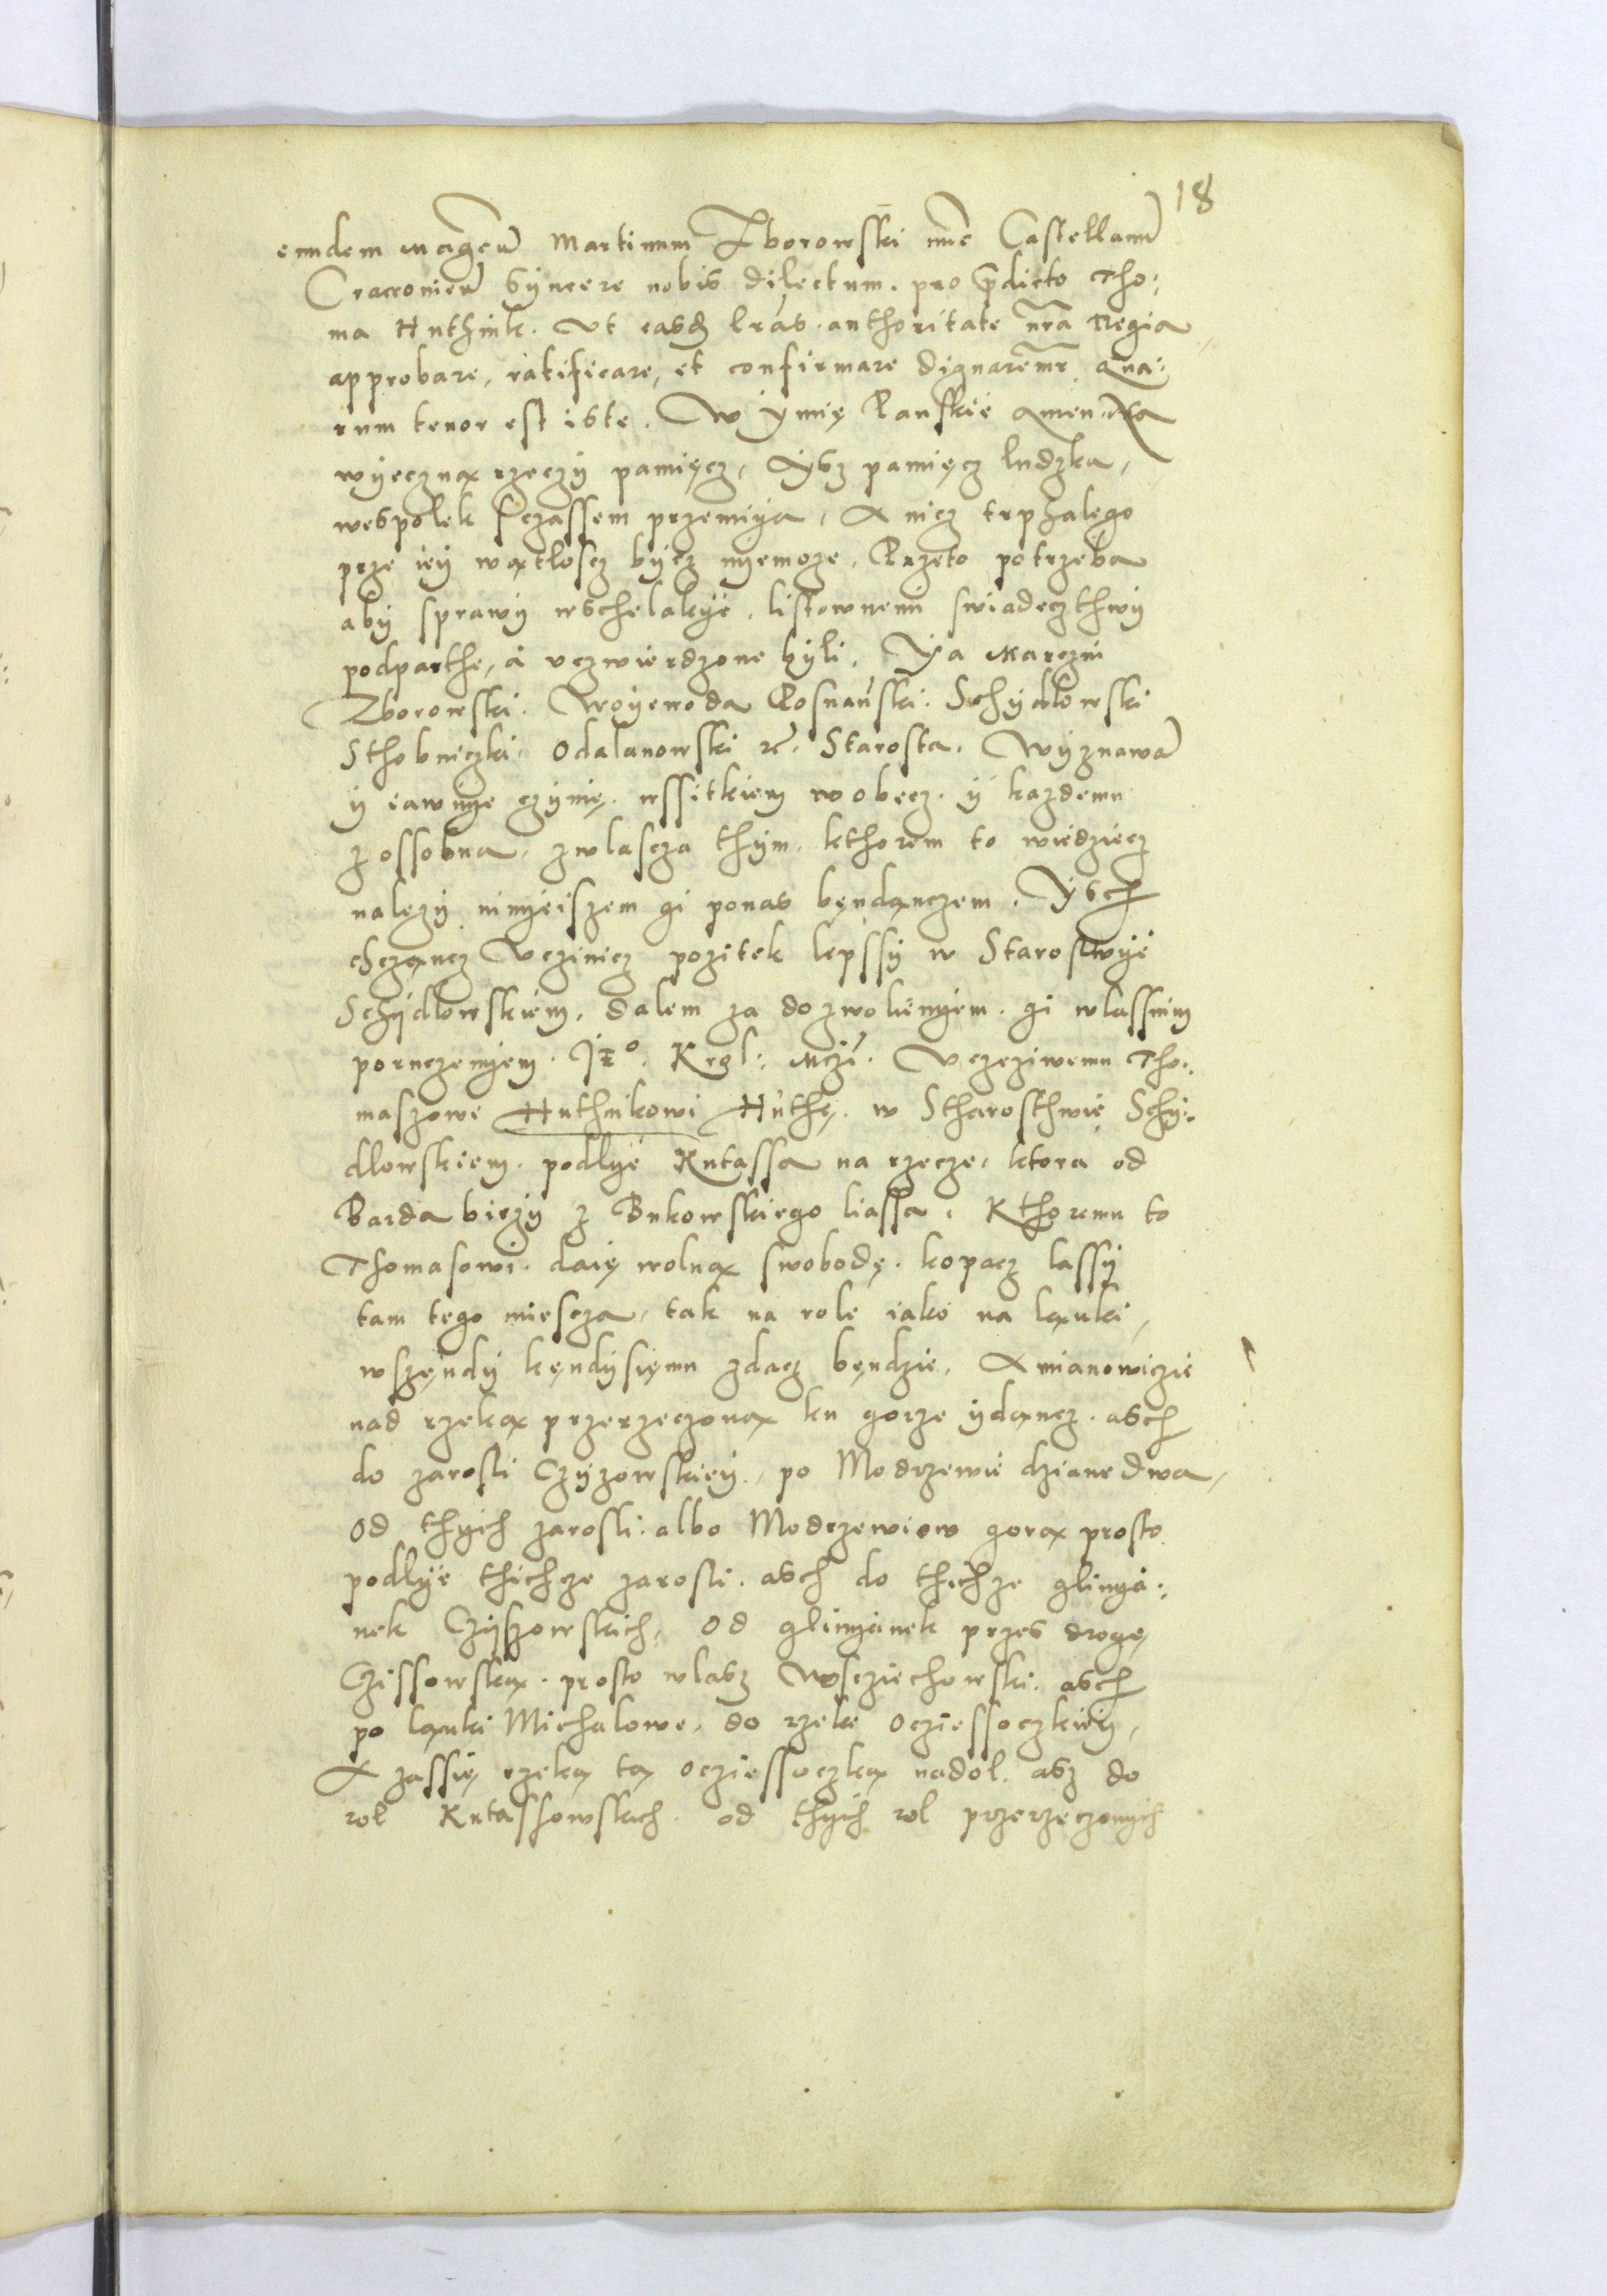 18
eundem magcu͂ Martinum Zborowski nūc Castellanu͂
Cracovien͂ syncere nobis dilectum. pro p͂dicto Tho:
ma Huthnik. Vt easq̃ l͂ras. authoritate n͂ra Regia
approbare, ratificare, et confirmare dignarem͂r Qua:
rum tenor est iste. W ymię Panskie amen. Na
wyeczną rzeczy pamięcz, Yzs pamięcz ludzka,
wespolek sczassem przemiya, A nicz trphalego
prze iey wątlosc bycz nyemoze, Przeto potrzeba
aby sprawy wschelakye, listownemi swiadeczthwy
podparthe, a vczwierdzone byli, Ya Marczin
Zborowski. Woyewoda Posnański. Schydlowski
Sthobniczki. Odalanowski etc͂. Starosta. Wyznawa͂
y iawnye czynię. wssitkiem wobecz. y kazdemu
zossobna, zwlascza thym, kthorem to wiedziecz
nalezy ninyeiszem gi ponas będączem. Ysch
chcząncz Vczinicz pozitek lepssy w Starostwye
Schydlowskiem, dalem za dozwolienyem. gi wlassnim
poruczenyem. Je͂º. Krol: Mczi. Vczcziwemu Tho:
maszowi Huthnikowi Huthę. w Stharosthwie Schy:
dlowskiem. podlye Kutassa na rzecze, ktora od
Barda biezy z Bukowskiego liassa, Kthoremu to
Thomasowi. daię wolną swobodę. kopacz lassy
tam tego miescza, tak na role iako na ląnki,
wszęndy kęndysięmu zdacz bęndzie, A mianowiczie
nad rzeką przerzeczoną ku gorze ydąncz. asch
do zarosli Czyzowskiey, po Modrzewie dziane dwa,
Od thych zarosli. albo Modrzewiow gorą prosto
podlye thichze zarosli. asch do thichze glinya:
nek Czyszowskich, Od glinyanek przes drogę
Czissowską. prosto wlasz Woscziechowski. asch
po ląnki Michalowe, do rzeki Ocziessoczkiey,
A zassię rzeką tą Ocziessoczką nadol. asz do
rol Kutassowskich. od thych rol przerzeczonych